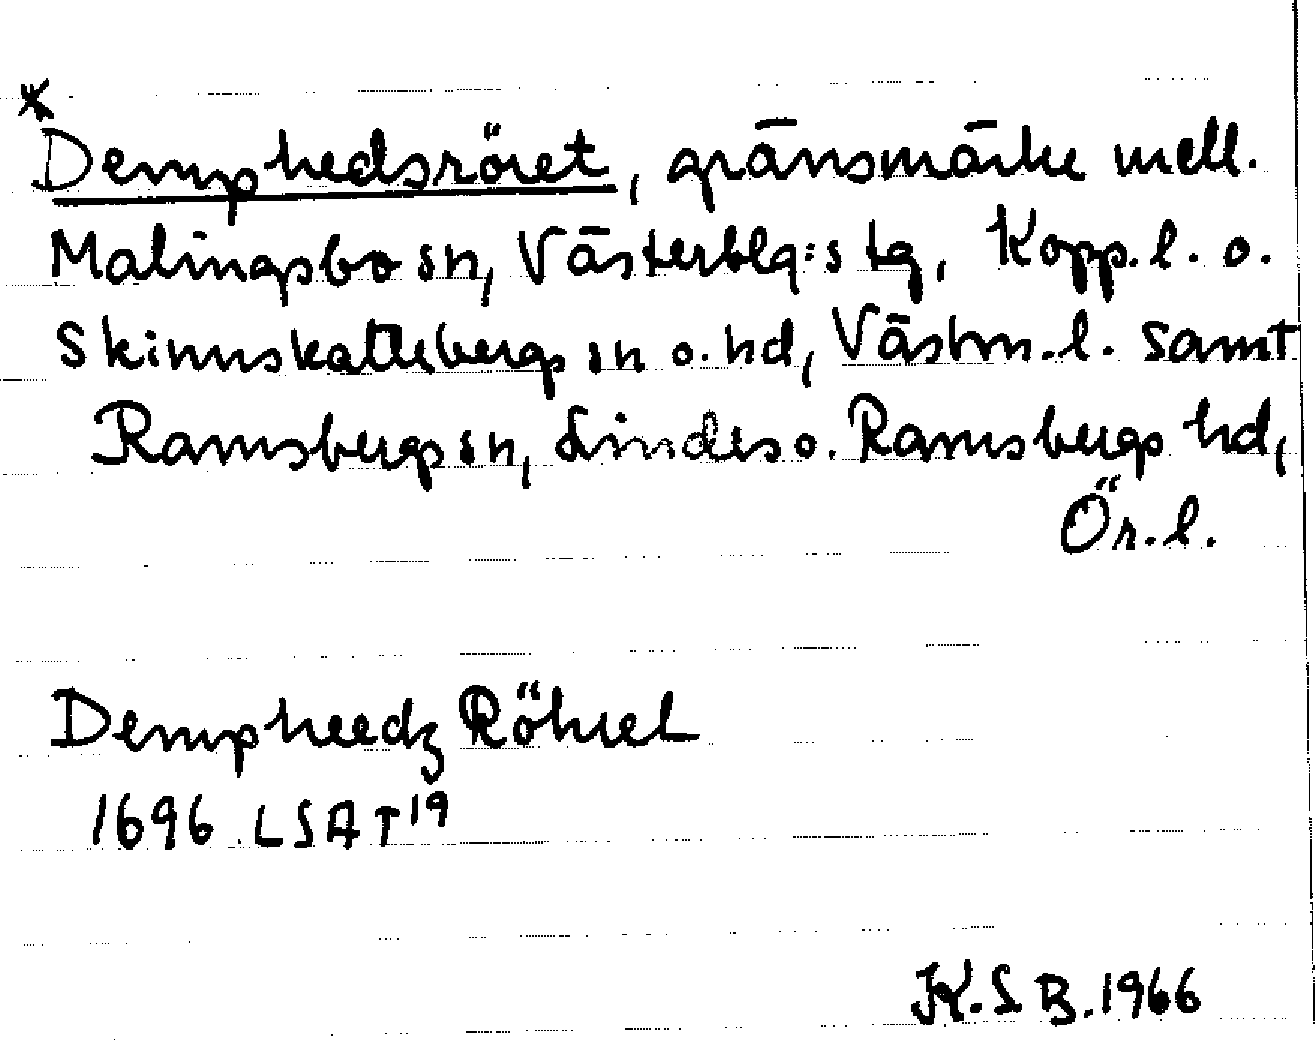 *Demphedsröret, gränsmärke mell.
Malingsbo sn, Västerblg:s tg, Kopp. l. o.
Skinnskattebergs sn o. hd, Västm. l. samt
Ramsbergs sn, Lindes o. Ramsbergs hd,
Ör. l.
Dempheedz Röhret
1696 LSA T19
K.S B. 1966